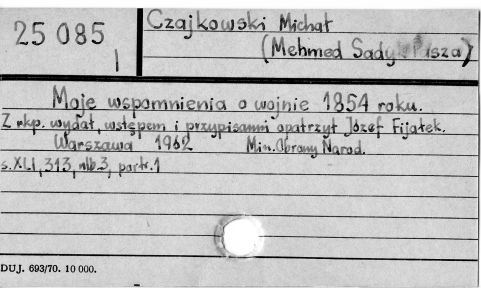 25 085
I
Czajkowski Michał
(Mehmed Sadyk Pasza)
Moje wspomnienia o wojnie 1854 roku.
Z rkp. wydał, wstępem i przypisami opatrzył Józef Fijałek.
Warszawa 1962 Min. Obrony Narod.
s. XLI, 313, nlb. 3, portr. 1
DUJ. 693/70. 10 000.